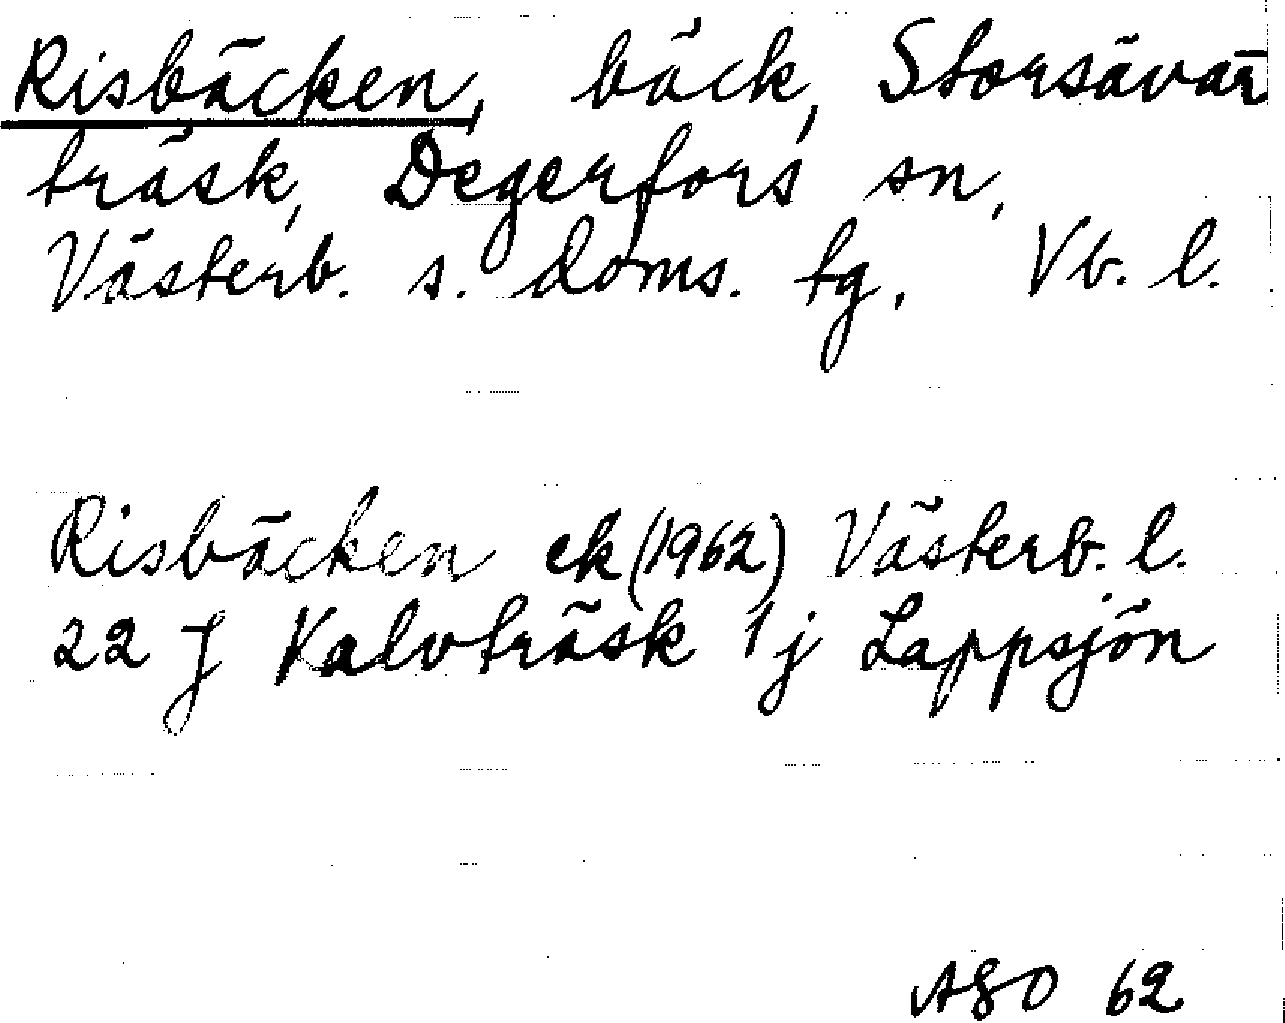 Risbäcken, bäck, Storsävar
träsk, Degerfors sn,
Västerb. s. doms. tg, Vb. l.
Risbäcken ek (1962) Västerb. l.
22 J Kalvträsk 1 j Lappsjön
ASO 62